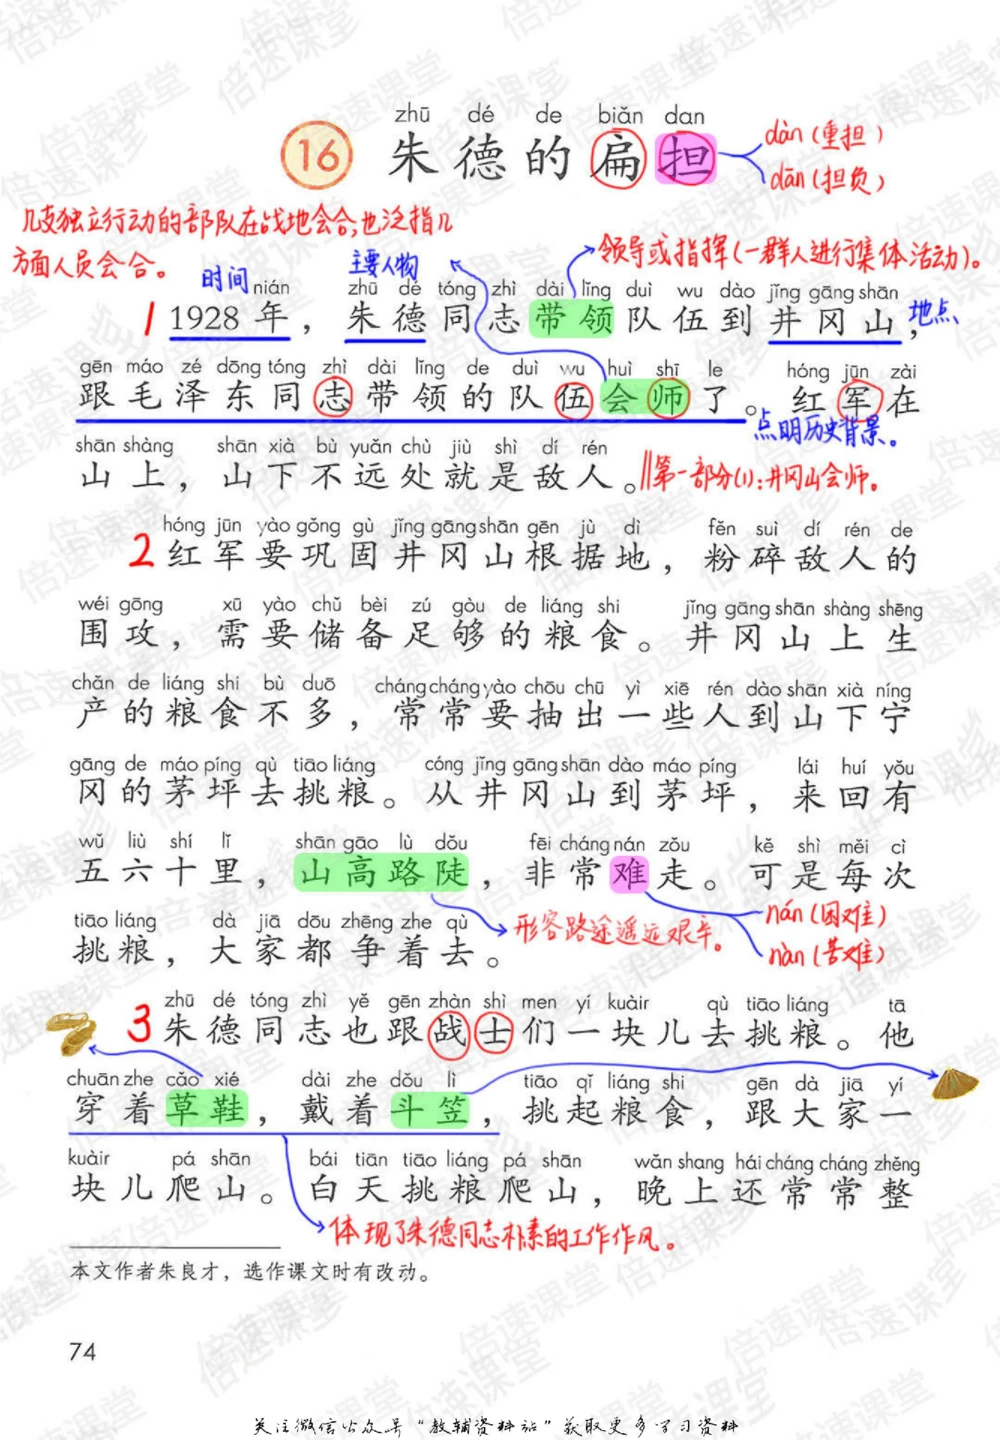 zhū dé de biǎn dan
16 朱德的扁担
dàn(重担)
dān(担负)
几支独立行动的部队在战地会合;也泛指几
方面人员会合。
时间
主要人物
领导或指挥(一群人进行集体活动)。
nián zhū dé tóng zhì dài lǐng duì wu dào jǐng gāng shān
1 1928年，朱德同志带领队伍到井冈山，
地点
gēn máo zé dōng tóng zhì dài lǐng de duì wu huì shī le hóng jūn zài
跟毛泽东同志带领的队伍会师了。红军在
点明历史背景。
shān shàng shān xià bù yuǎn chù jiù shì dí rén
山上，山下不远处就是敌人。
‖第一部分(1):井冈山会师。
hóng jūn yào gǒng gù jǐng gāng shān gēn jù dì fěn suì dí rén de
2 红军要巩固井冈山根据地，粉碎敌人的
wéi gōng xū yào chǔ bèi zú gòu de liáng shi jǐng gāng shān shàng shēng
围攻，需要储备足够的粮食。井冈山上生
chǎn de liáng shi bù duō cháng cháng yào chōu chū yì xiē rén dào shān xià níng
产的粮食不多，常常要抽出一些人到山下宁
gāng de máo píng qù tiāo liáng cóng jǐng gāng shān dào máo píng lái huí yǒu
冈的茅坪去挑粮。从井冈山到茅坪，来回有
wǔ liù shí lǐ shān gāo lù dǒu fēi cháng nán zǒu kě shì měi cì
五六十里，山高路陡，非常难走。可是每次
形容路途遥远艰辛。
nán(困难)
nàn(苦难)
tiāo liáng dà jiā dōu zhēng zhe qù
挑粮，大家都争着去。
zhū dé tóng zhì yě gēn zhàn shì men yí kuàir qù tiāo liáng tā
3 朱德同志也跟战士们一块儿去挑粮。他
chuān zhe cǎo xié dài zhe dǒu lì tiāo qǐ liáng shi gēn dà jiā yí
穿着草鞋，戴着斗笠，挑起粮食，跟大家一
kuàir pá shān bái tiān tiāo liáng pá shān wǎn shang hái cháng cháng zhěng
块儿爬山。白天挑粮爬山，晚上还常常整
体现了朱德同志朴素的工作作风。
本文作者朱良才，选作课文时有改动。
74
关注微信公众号“教辅资料站”获取更多学习资料
倍速课堂